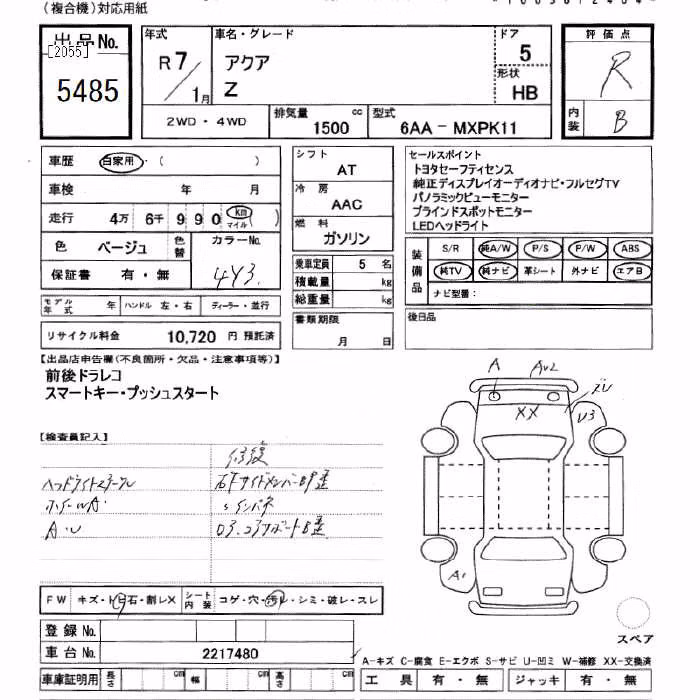 (複合機)対応用紙
出品No.
[2055]
5485
年式
R7/1月
車名・グレード
アクア
Z
ドア
5
形状
HB
評価点
R
内装
B
2WD・4WD
排気量
1500 cc
型式
6AA-MXPK11
車歴
自家用・( )
車検 年 月
走行 4万 6千 9 9 0 km マイル
色 ベージュ
色替
カラーNo.
4Y3
保証書 有・無
モデル年式 年
ハンドル 左・右
ディーラー・並行
リサイクル料金 10,720 円 預託済
シフト
AT
冷房
AAC
燃料
ガソリン
乗車定員 5 名
積載量 kg
総重量 kg
書類期限
月 日
セールスポイント
トヨタセーフティセンス
純正ディスプレイオーディオナビ・フルセグTV
パノラミックビューモニター
ブラインドスポットモニター
LEDヘッドライト
装備品
S/R 純A/W P/S P/W ABS
純TV 純ナビ 革シート 外ナビ エアB
ナビ型番:
後日品
【出品店申告欄(不良箇所・欠品・注意事項等)】
前後ドラレコ
スマートキー・プッシュスタート
【検査員記入】
修復
A・U
A
AU2
XX
U3
A1
スペア
FW キズ・トビ石・割レX
シート内装 コゲ・穴・汚レ・シミ・破レ・スレ
登録No.
車台No. 2217480
車庫証明用 長さ cm 幅 cm 高さ cm
A-キズ C-腐食 E-エクボ S-サビ U-凹ミ W-補修 XX-交換済
工具 有・無 ジャッキ 有・無